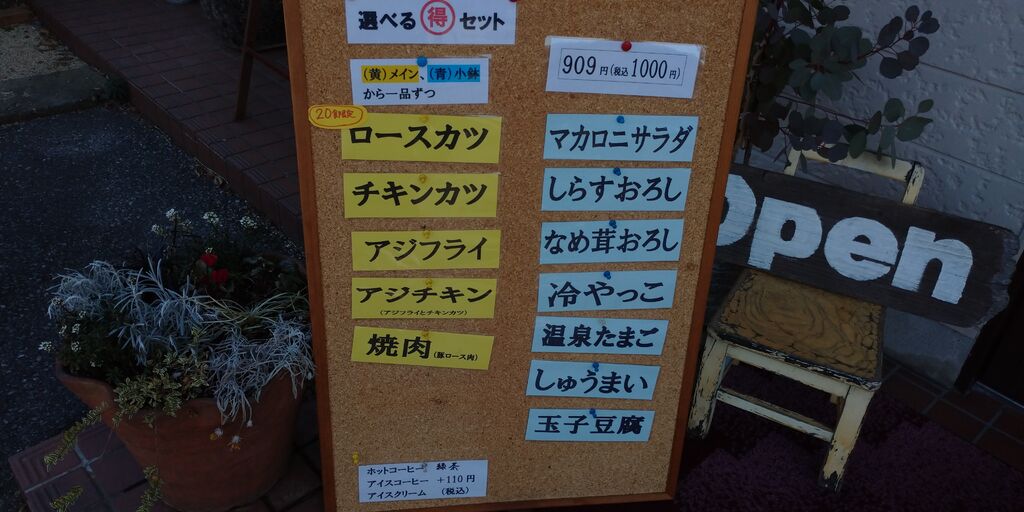 選べる 得 セット
(黄)メイン、(青)小鉢
から一品ずつ
909円(税込1000円)
20食限定
ロースカツ
チキンカツ
アジフライ
アジチキン
(アジフライとチキンカツ)
焼肉(豚ロース肉)
マカロニサラダ
しらすおろし
なめ茸おろし
冷やっこ
温泉たまご
しゅうまい
玉子豆腐
ホットコーヒー 緑茶
アイスコーヒー +110円
アイスクリーム (税込)
Open